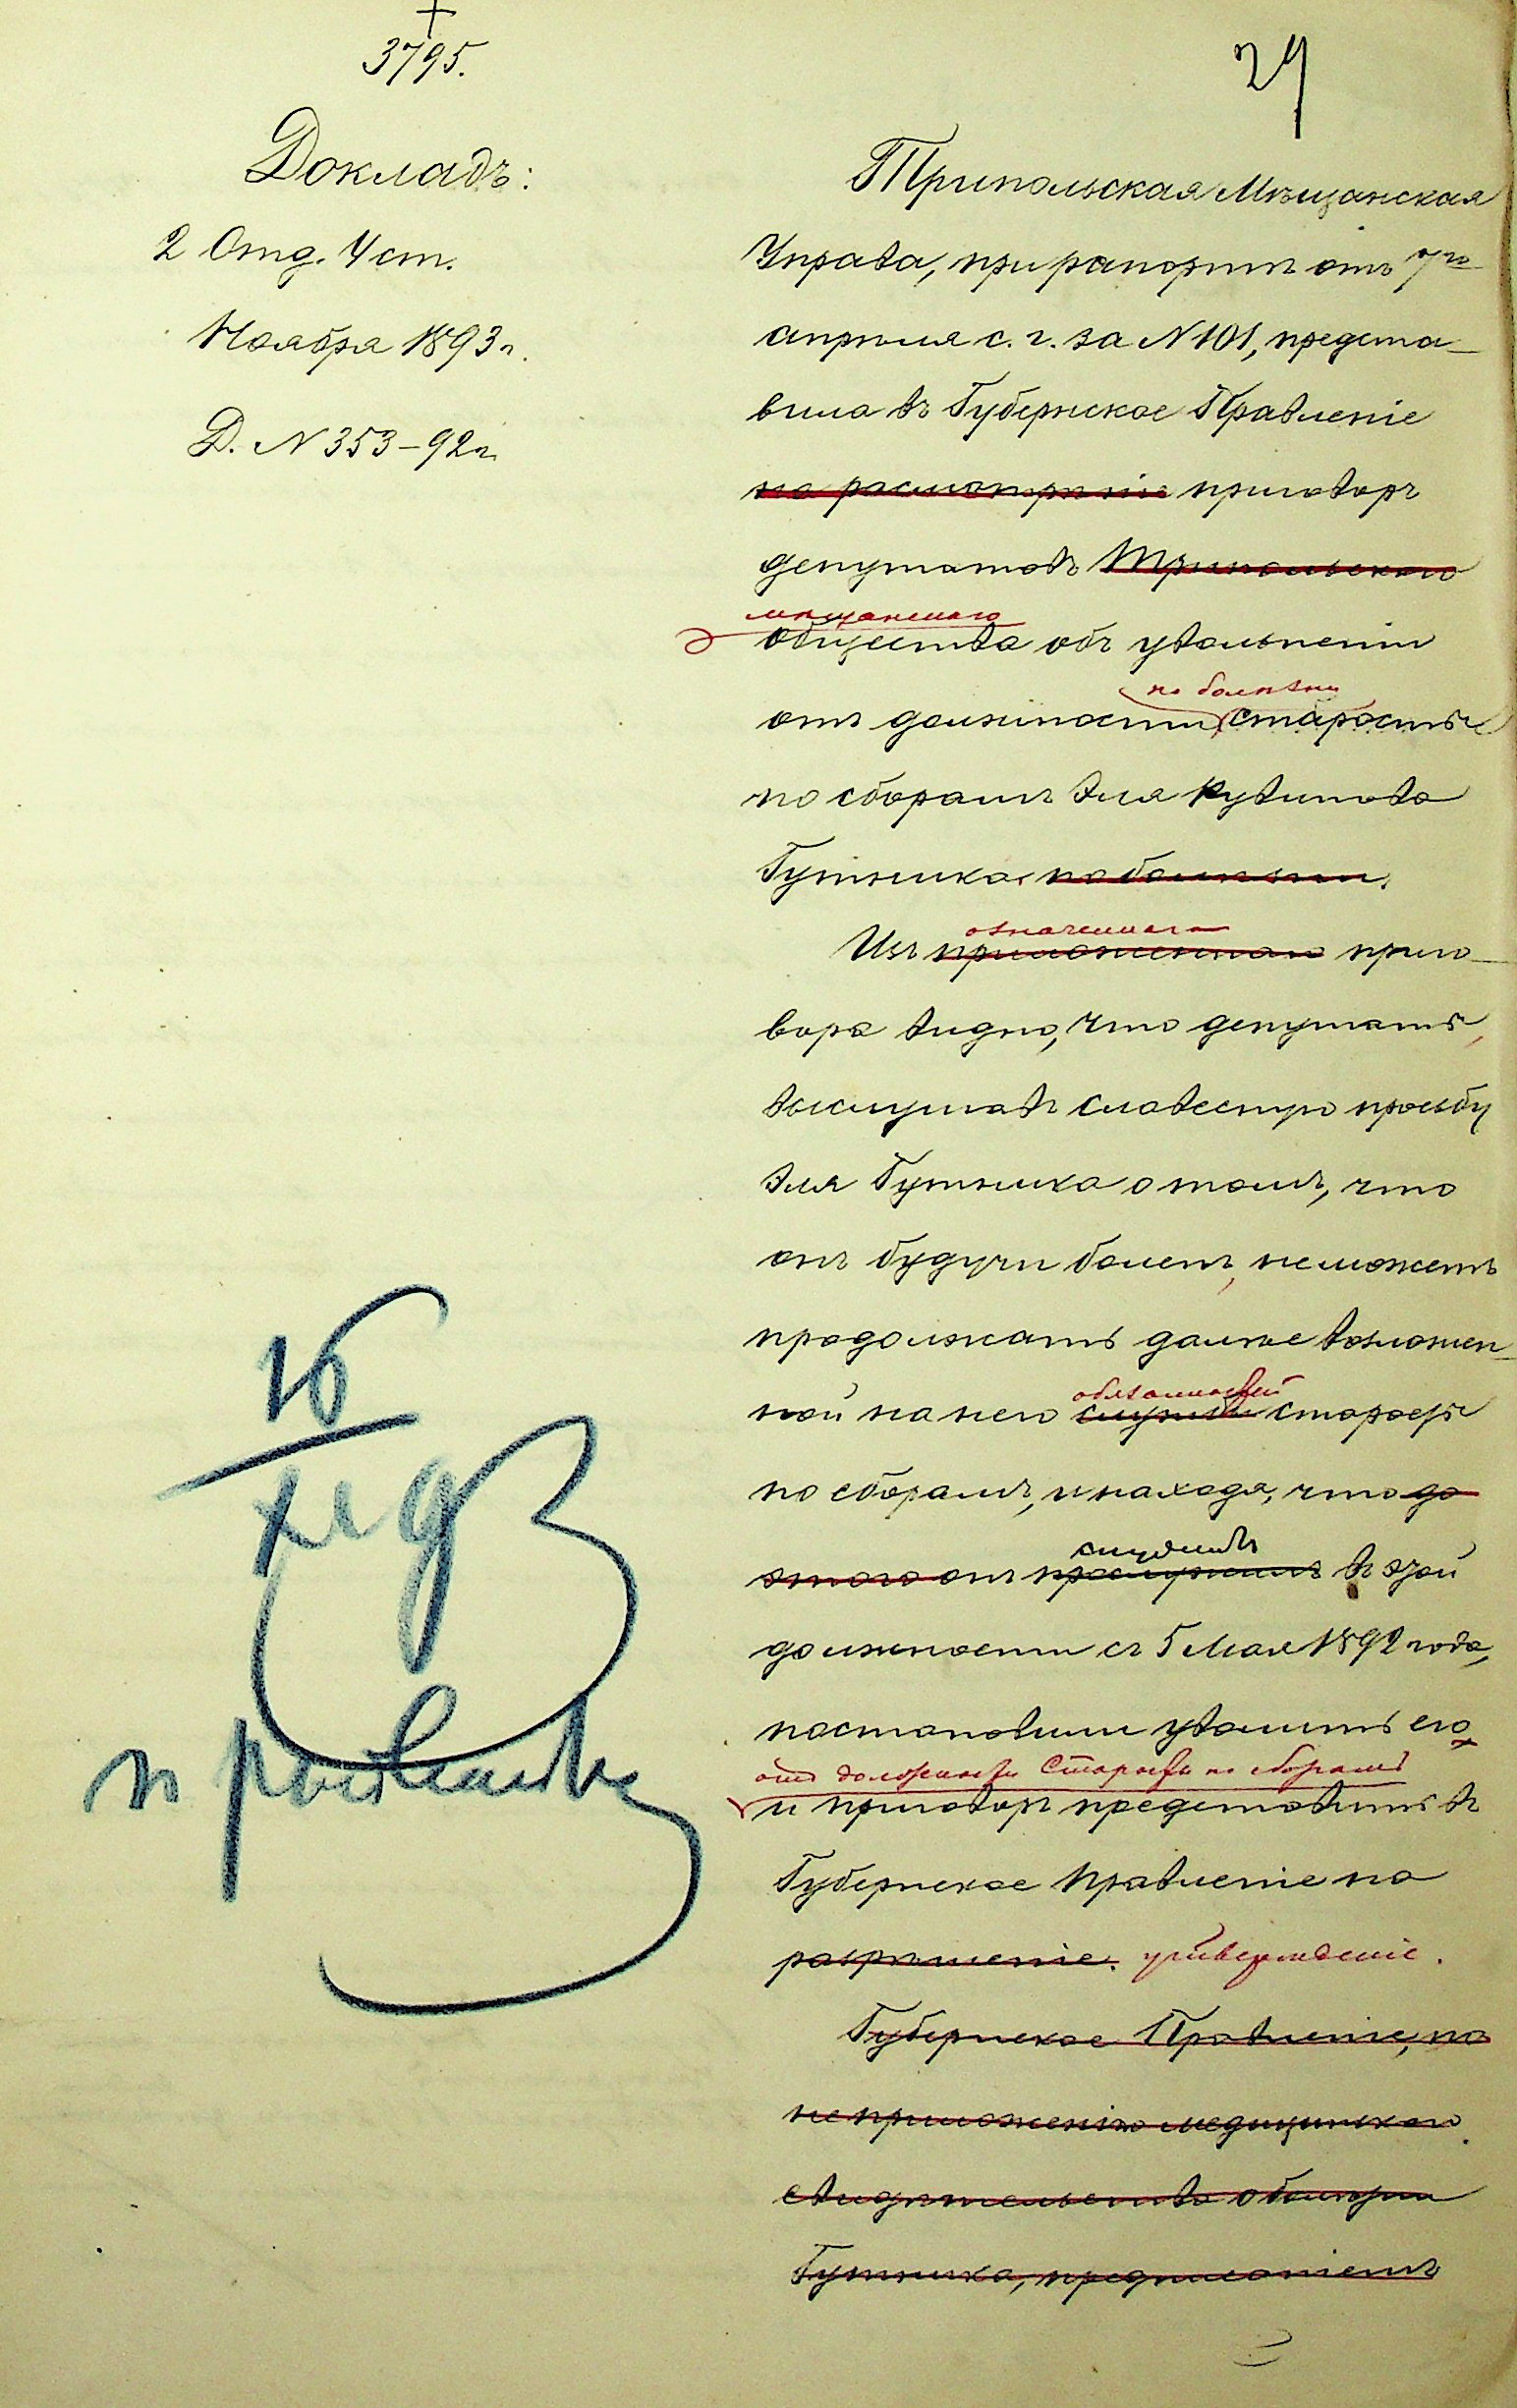 3795.
29
Докладъ:
2 Отд. 4 ст.
Ноября 1893 г.
Д. № 353-92 г.
Трипольская Мѣщанская
Управа, при рапортѣ отъ 7го
апрѣля с. г. за № 101, предста-
вила въ Губернское Правленіе
на расмотрѣніе приговоръ
депутатовъ Трипольскаго
мѣщанскаго
общества объ увольненіи
по болѣзни
отъ должности старосты
по сборамъ Эля Рувинова
Гутника по болѣзни.
означеннаго
Изъ приложеннаго приго-
вора видно, что депутаты,
выслушавъ словесную прозьбу
Эля Гутника о томъ, что
онъ будучи боленъ, не можетъ
продолжать далѣе возложен-
обязанностей
ной на него службы старосты
по сборамъ, и находя, что до
служитъ
этого онъ прослужилъ въ этой
должности съ 5 Мая 1892 года,
постановили уволить его
отъ должности Старосты по сборамъ
и приговоръ представить въ
Губернское Правленіе на
разрѣшеніе. утвержденіе.
Губернское Правленіе, по
неприложенію медицинскаго
свидѣтельства о болѣзни
Гутника, предписаніемъ
16
XI